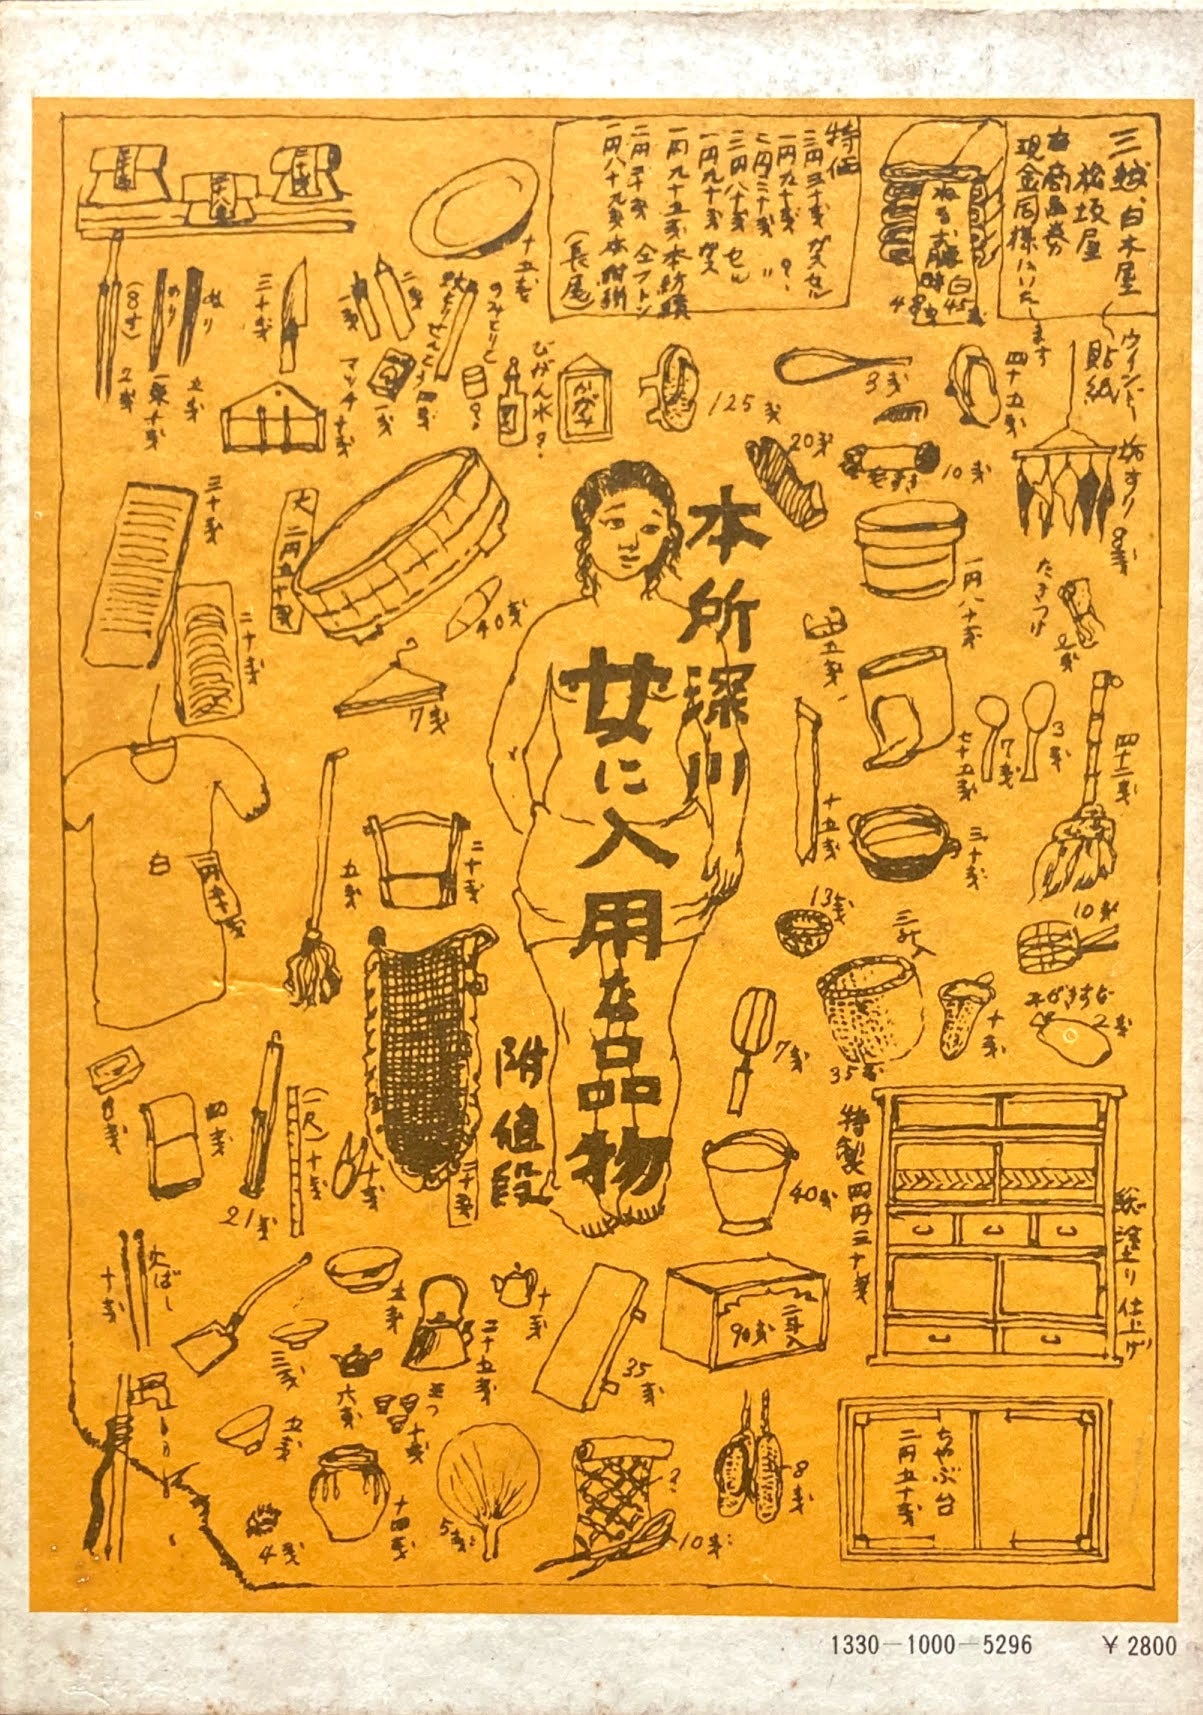 三越、白木屋
松坂屋
商品券
現金同様にいたします
ウインドー貼紙
特価
三円三十銭 ガスセル
一円九十銭 ?
三円八十銭 セル
一円九十銭 ガス
一円九十五銭 本紡績
二円三十銭 全フトン
一円八十九銭
(長尾)
白
45銭
48銭
十五銭
三十銭
(8寸)
2銭
ぬり
ぬり
五銭
一束十銭
三十銭
二銭
一銭
マッチ
一銭
十銭
のみとりこ
?
びがん水?
かがみ
125銭
3銭
四十五銭
20銭
10銭
8銭
三十銭
二十銭
大 二円五十銭
40銭
7銭
本所深川
女に入用な品物
附値段
一円八十銭
たきつけ
2銭
五銭
七十五銭
7銭
3銭
四十二銭
十五銭
三十銭
13銭
10銭
35銭
十銭
2銭
白
五銭
二十銭
三十銭
8銭
四銭
21銭
(一尺)十銭
十銭
7銭
40銭
特製 四円三十銭
総塗り仕上げ
火ばし
十銭
五銭
三銭
六銭
二十五銭
十銭
35銭
90銭
二斗入
五銭
三つ
十銭
4銭
十四銭
5銭
?
10銭
8銭
ちゃぶ台
二円五十銭
1330-1000-5296 ¥2800